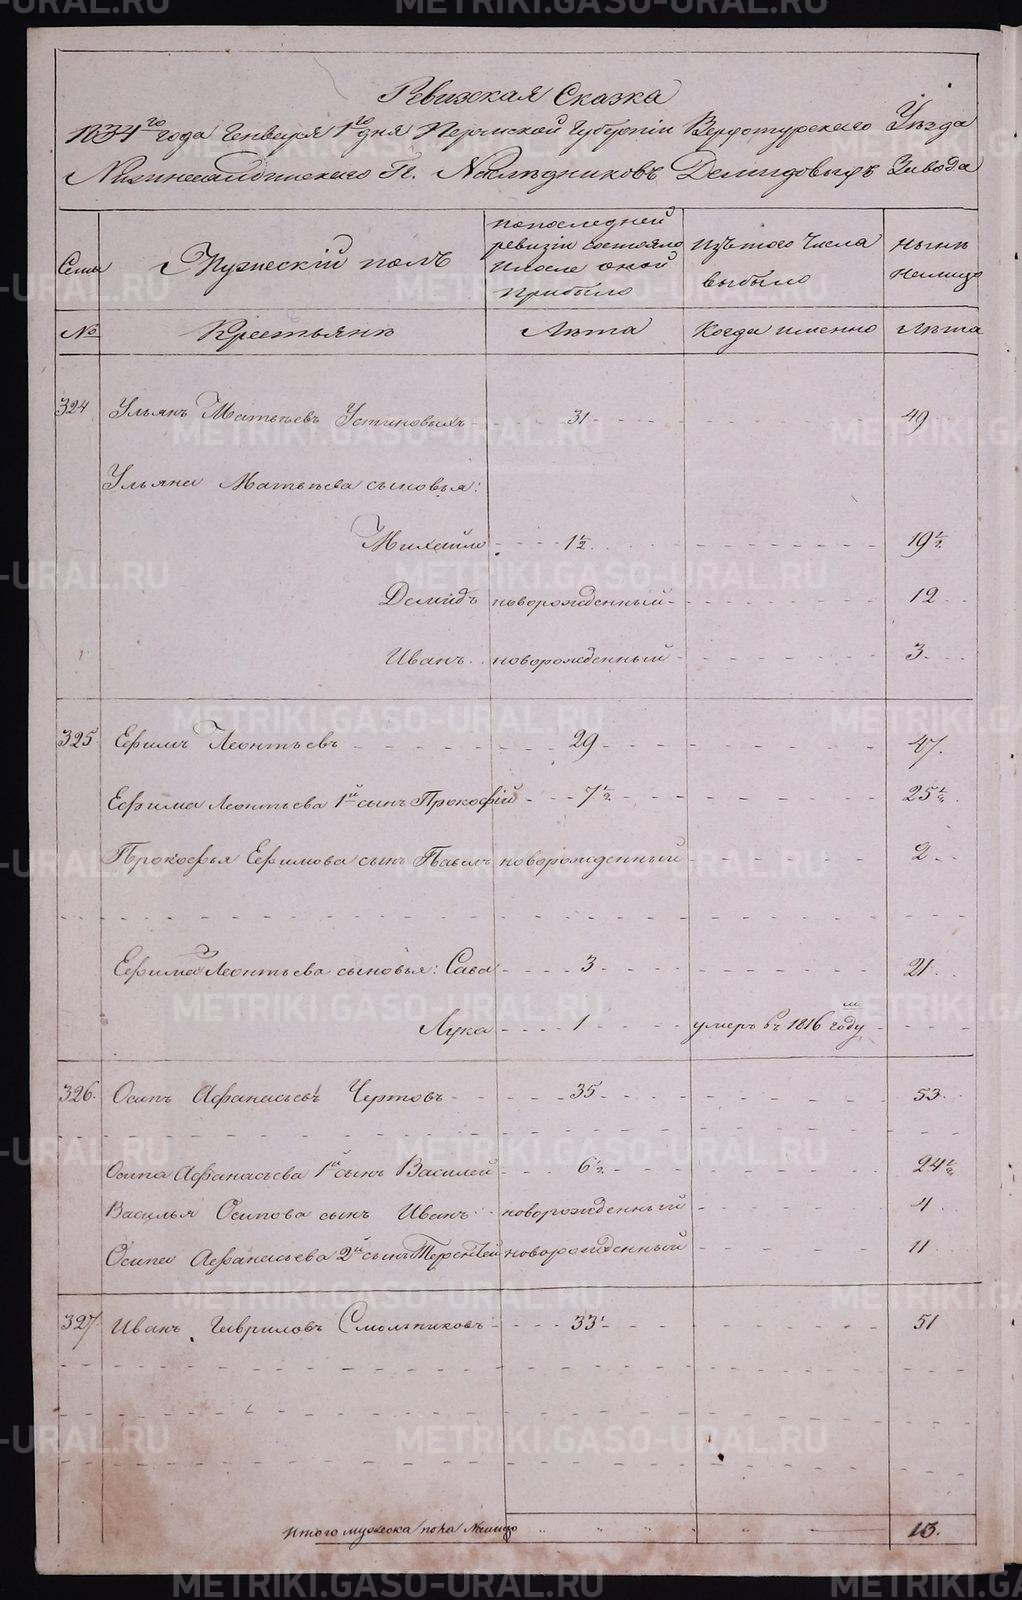 Ревизская Сказка
1834го года Генваря 1го дня Пермской Губернiи Верхотурскаго Уѣзда
Нижнесалдинскаго Г. Наслѣдниковъ Демидовыхъ Завода
Семьи Мужескiй полъ по последней ревизiи состояло и после оной прибыло изъ того числа выбыло нынѣ на лицо
№ Крестьянѣ Лѣта Когда именно Лѣта
324 Ульянъ Матвѣевъ Устиновыхъ 31 49
Ульяна Матвѣева сыновья:
Михайло 1 1/2 19 1/2
Демидъ новорожденный 12
Иванъ новорожденный 3
325 Ефимъ Леонтьевъ 29 47.
Ефима Леонтьева 1й сынъ Прокофiй 7 1/2 25 1/2
Прокофья Ефимова сынъ Павелъ новорожденный 2
Ефима Леонтьева сыновья: Сава 3 21
Лука 1 умеръ въ 1816м году
326. Осипъ Афанасьевъ Чертовъ 35 53
Осипа Афанасьева 1й сынъ Василей 6 1/2 24 1/2
Василья Осипова сынъ Иванъ новорожденный 4
Осипа Афанасьева 2й сынъ Терентей новорожденный 11
327 Иванъ Гавриловъ Смольниковъ 33 51
Итого мужеска пола на лицо 13.
METRIKI.GASO-URAL.RU